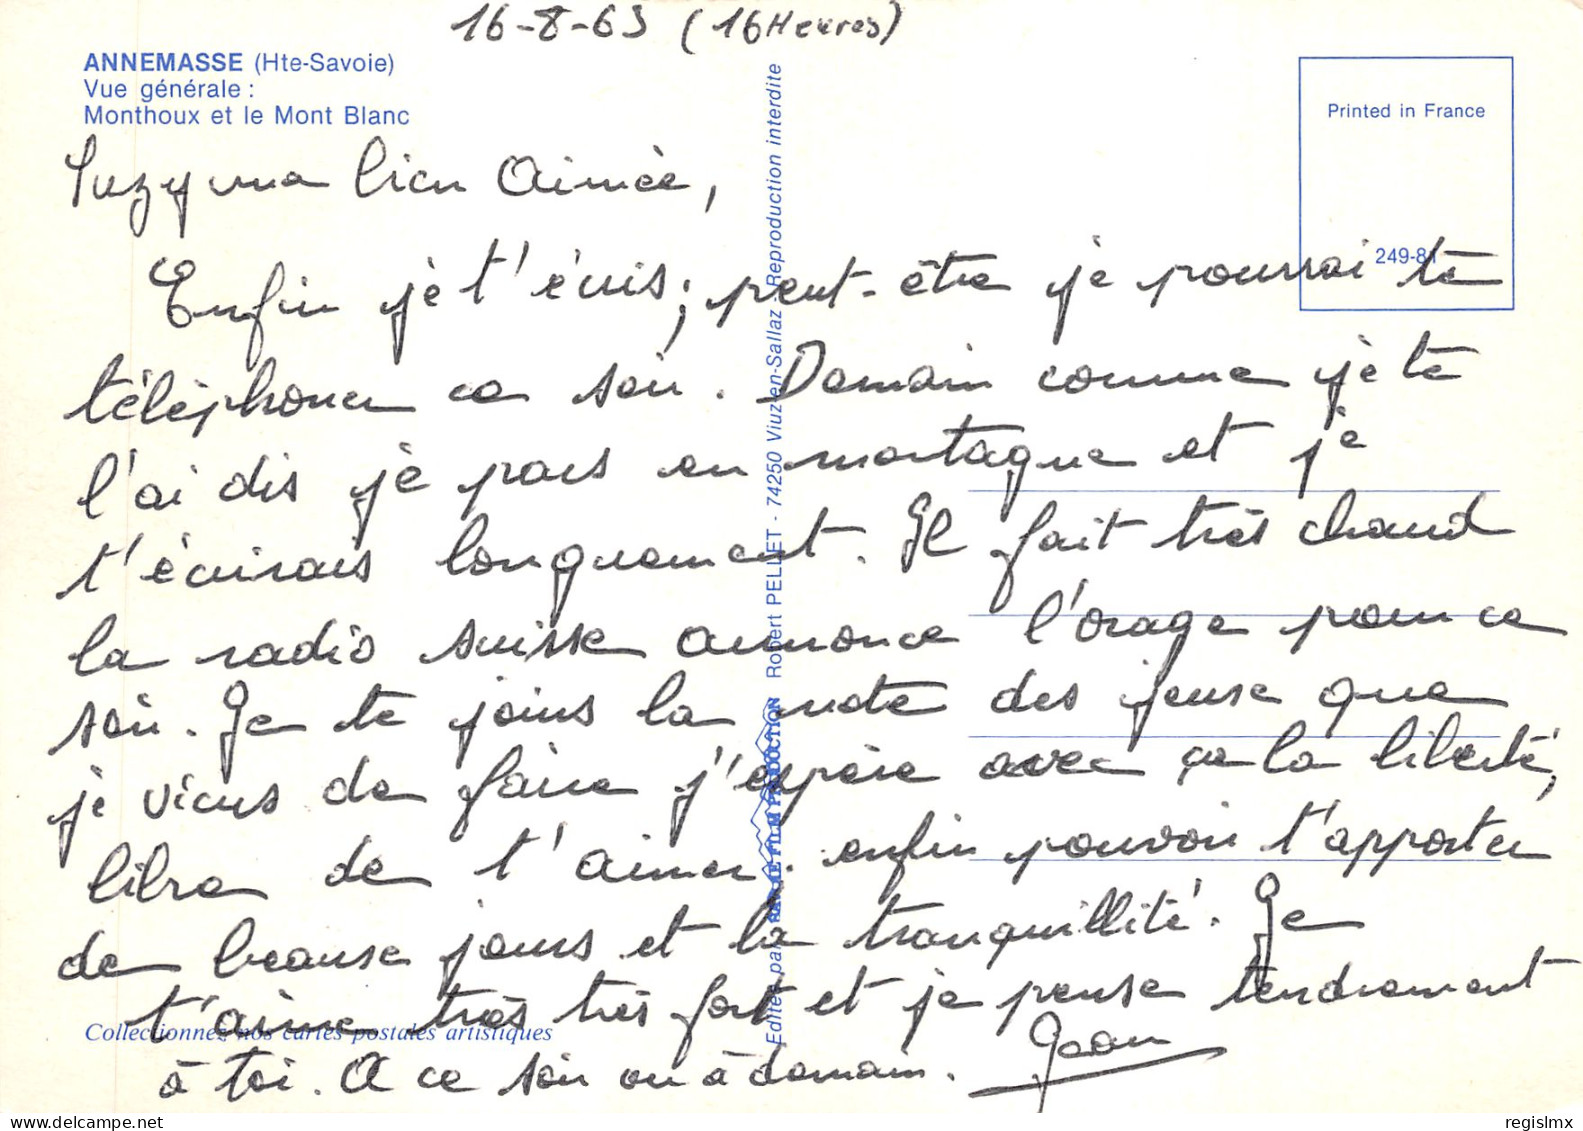 16-8-63 (16 Heures)
ANNEMASSE (Hte-Savoie)
Vue générale :
Monthoux et le Mont Blanc
Printed in France
249-81
Suzy ma bien Aimée,
Enfin je t'écris; peut-être je pourrai te
téléphoner ce soir. Demain comme je te
l'ai dis je pars en montagne et je
t'écrirais longuement. Il fait très chaud
la radio suisse annonce l'orage pour ce
soir. Je te joins la note des jeuse que
je viens de faire j'espère avec ça la liberté,
libre de t'aimer. enfin pouvoir t'apporter
de beause jours et la tranquillité. Je
t'aime très très fort et je pense tendrement
à toi. A ce soir ou à demain. Jean
Collectionnez nos cartes postales artistiques
Edité par PRODUCTION Robert PELLET - 74250 Viuz-en-Sallaz - Reproduction interdite
regislmx